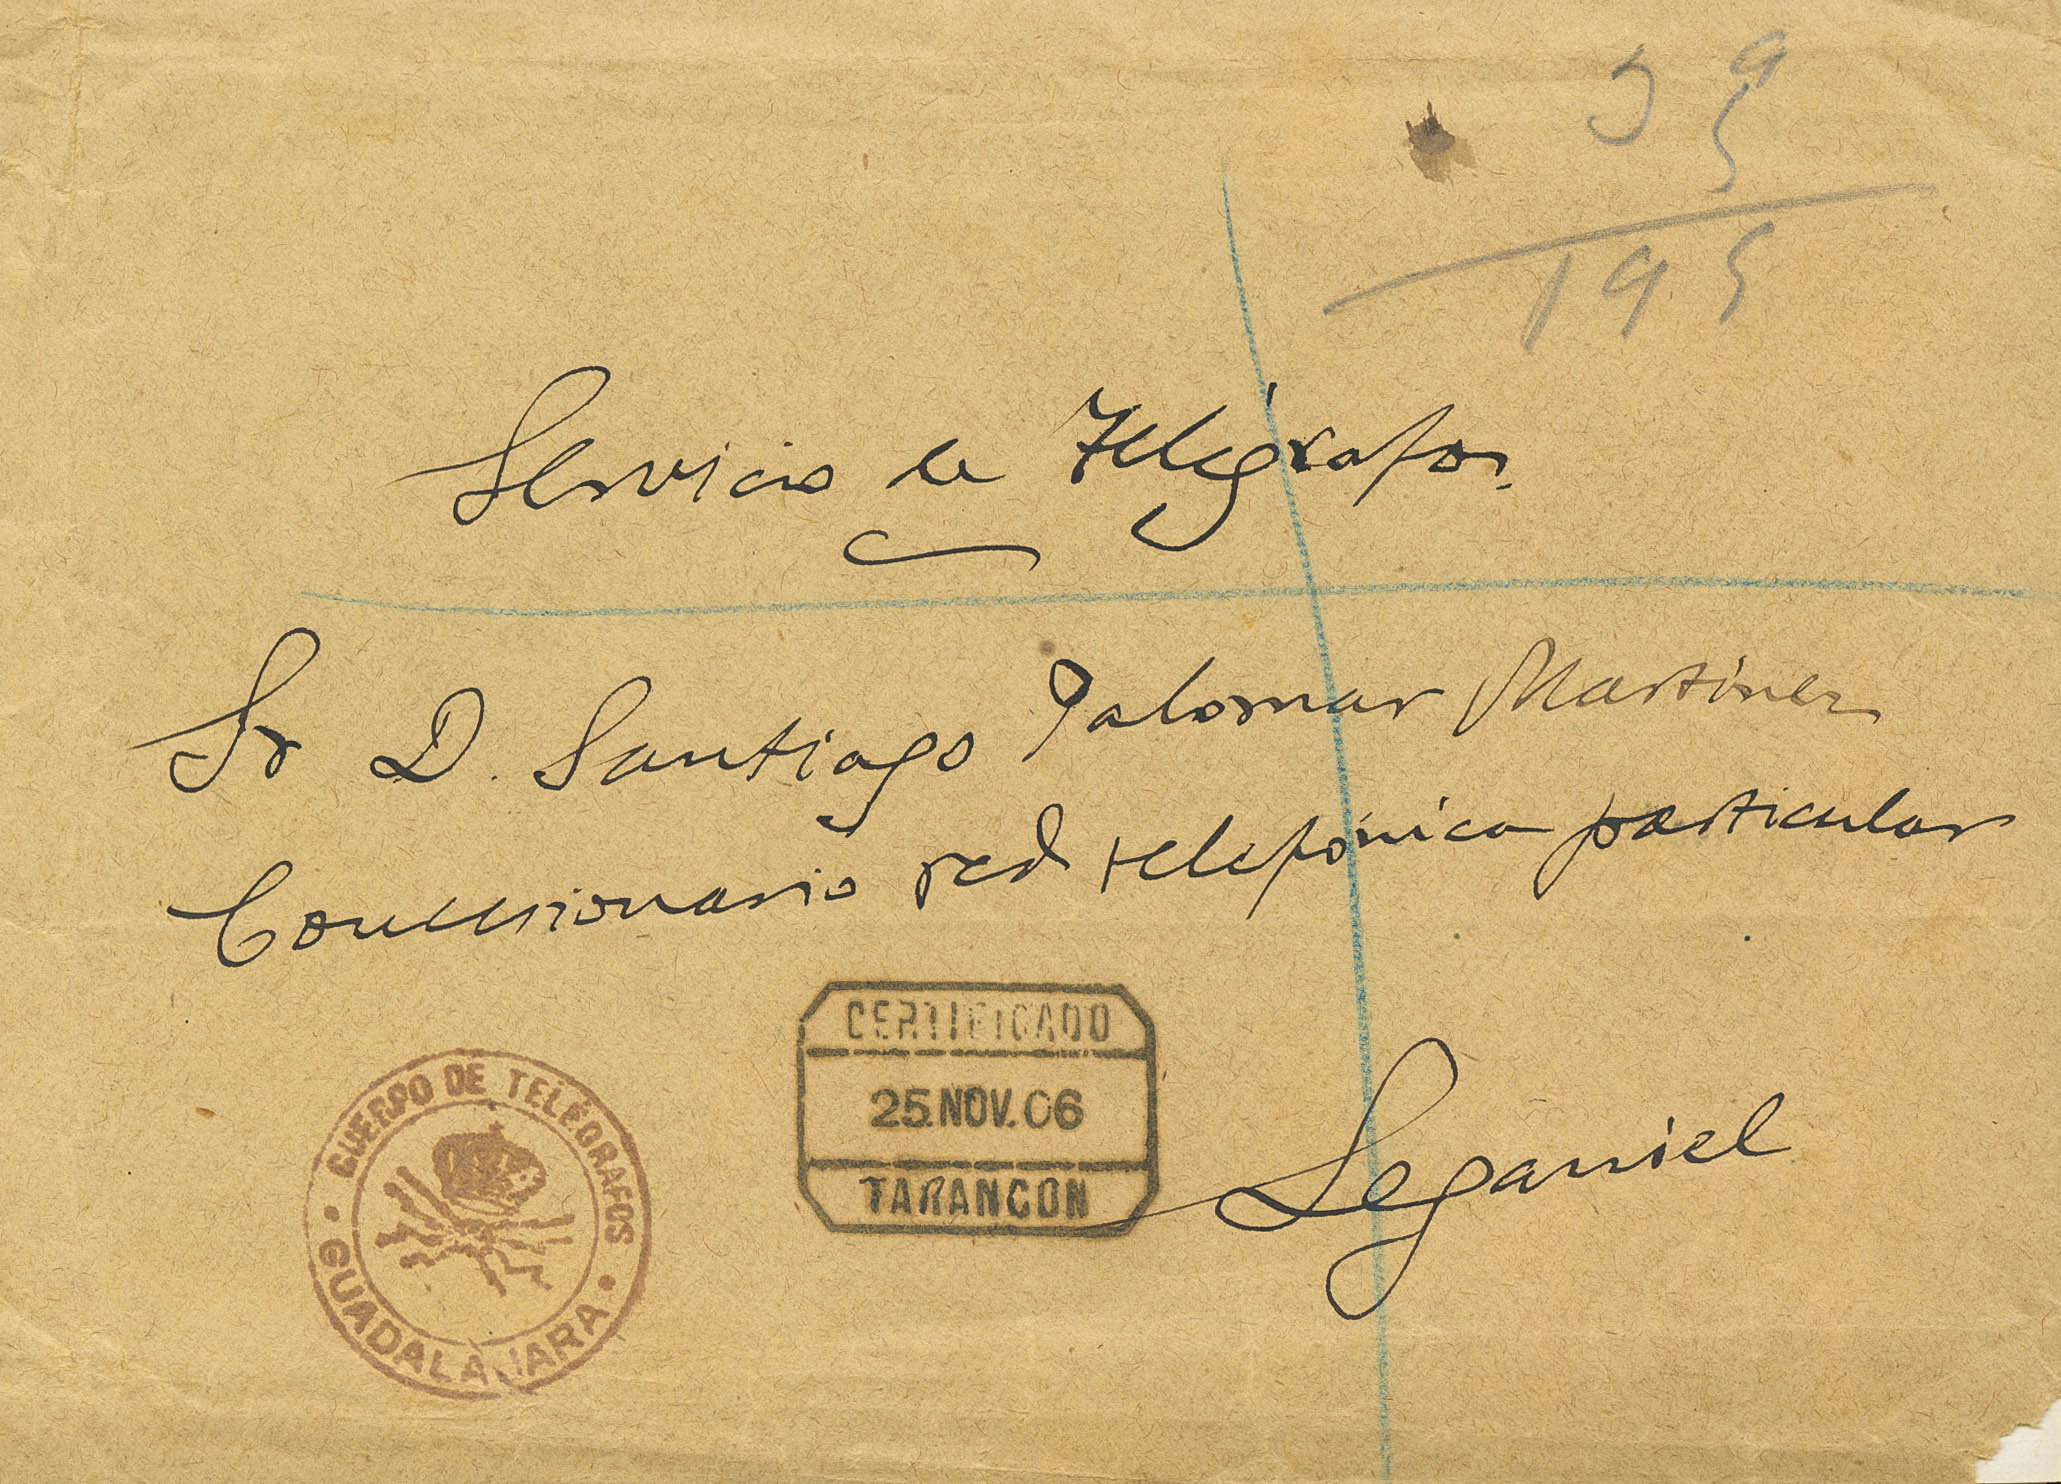 195
Servicio de Telégrafos.
Sr D. Santiago Palomar Martinez
Concesionario red telefónica particular
CERTIFICADO
25.NOV.06
TARANCON
Leganiel
CUERPO DE TELÉGRAFOS
GUADALAJARA